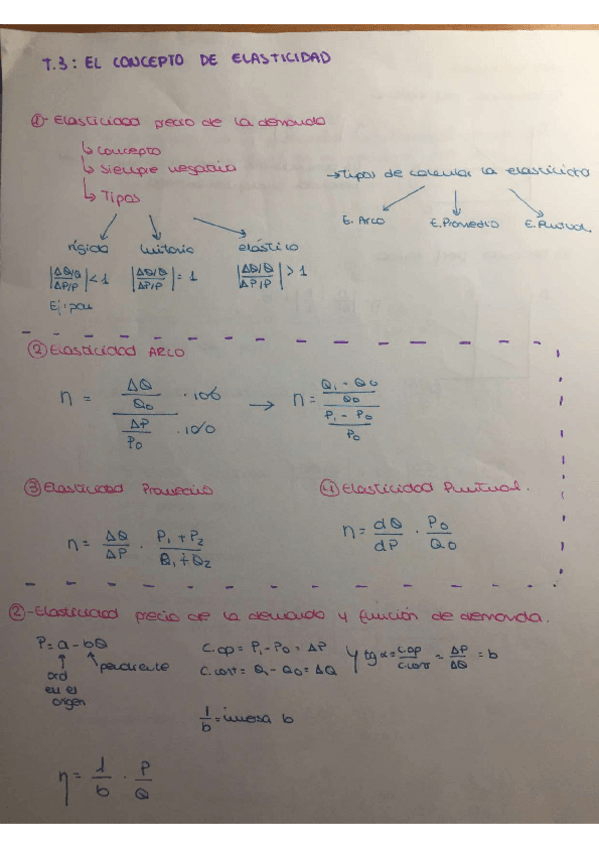 T.3: EL CONCEPTO DE ELASTICIDAD
①- Elasticidad precio de la demanda
↳ Concepto
↳ Siempre negativa
↳ Tipos
→ Tipos de calcular la elasticidad
E. Arco E. Promedio E. Puntual
rígida unitaria elástica
|ΔQ/Q / ΔP/P| < 1 |ΔQ/Q / ΔP/P| = 1 |ΔQ/Q / ΔP/P| > 1
Ej: pan
② Elasticidad ARCO
η = (ΔQ/Q₀ · 100) / (ΔP/P₀ · 100) → η = ((Q₁ - Q₀)/Q₀) / ((P₁ - P₀)/P₀)
③ Elasticidad Promedio
η = ΔQ/ΔP · (P₁ + P₂)/(Q₁ + Q₂)
④ Elasticidad Puntual.
η = dQ/dP · P₀/Q₀
②- Elasticidad precio de la demanda y función de demanda.
P = a - bQ
ord en el origen
pendiente
C. op = P₁ - P₀ = ΔP
C. cont = Q₁ - Q₀ = ΔQ
y tg α = C.op/C.cont = ΔP/ΔQ = b
1/b = inversa b
η = 1/b · P/Q